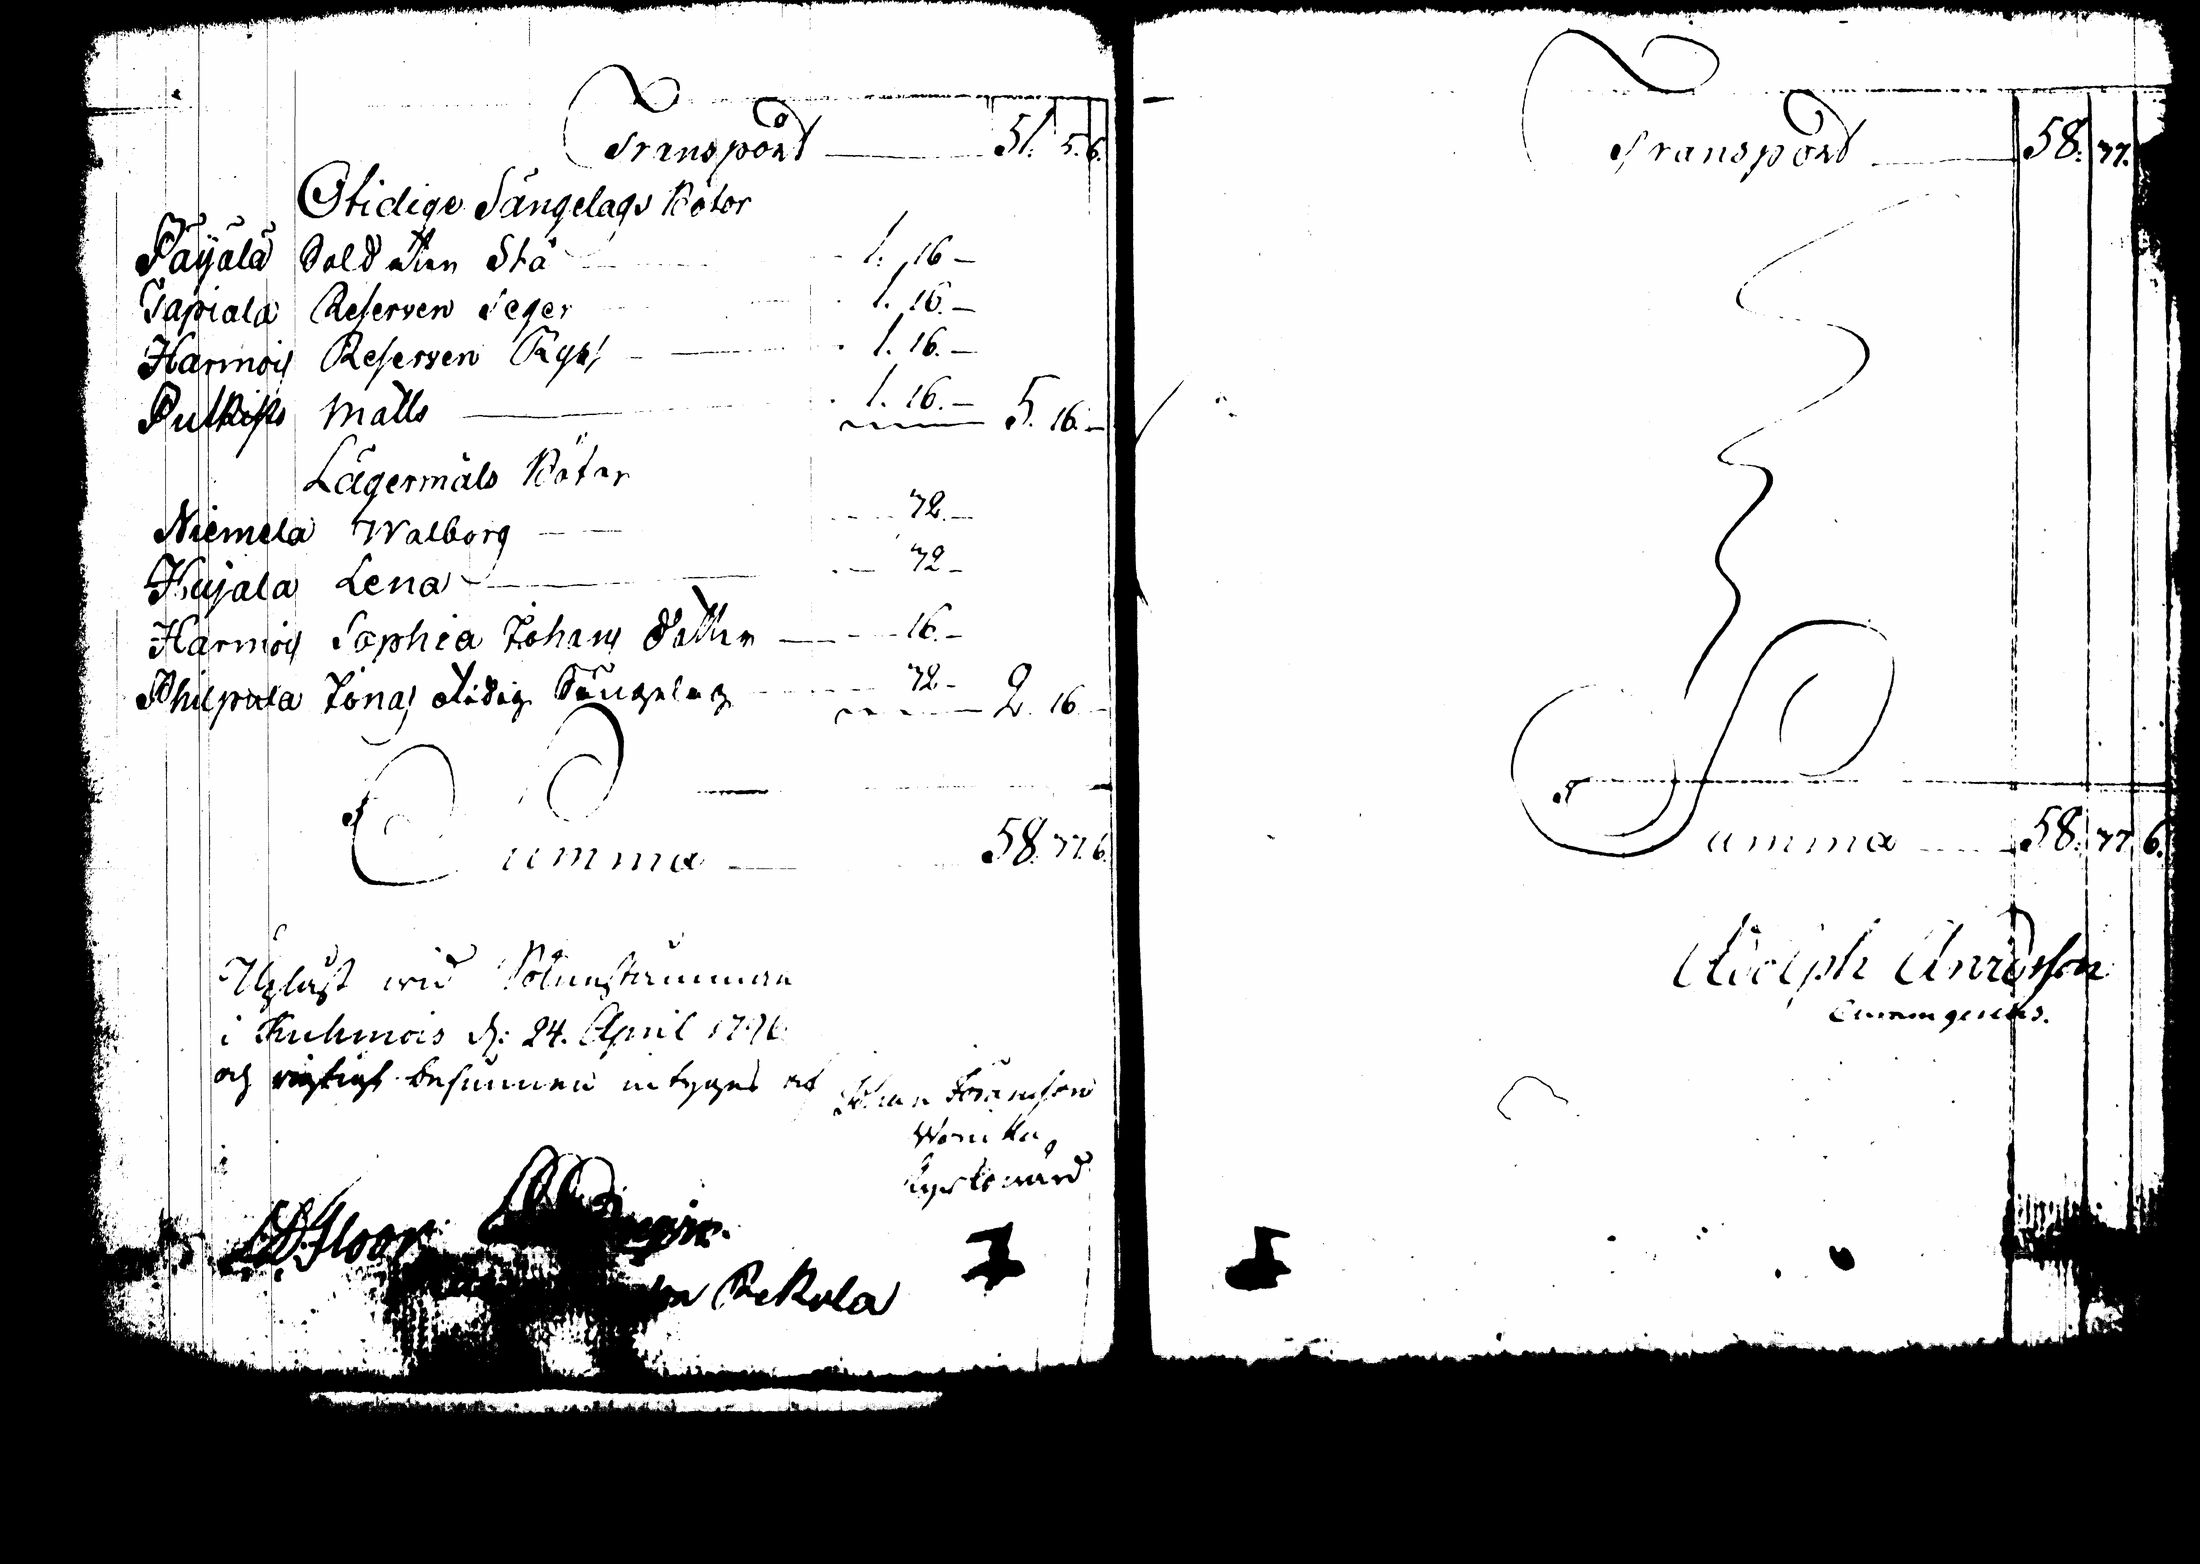 Transport 51. 5. 6.
Otidige Sängelags Böter
Päijälä Soldaten Stå 1. 16 —
Tapiala Reserven Seger 1. 16. —
Harmois Reserven Rysk 1. 16. —
Putkisto Matts 1. 16. — 5. 16. —
Lägermåls Böter
Niemela Walborg 72. —
Kujala Lena 72 —
Harmois Sophia Johans dotter 16. —
Philpula Jonas otidig Sängelag 72 — 2. 16
Summa 58. 77. 6.
Upläst wid Sockenstämman
i Kuhmois d: 24. April 1796
och riktigt befunnen intygas af Johan Göranson
Kyrkowärd
Floor
Rekola
Transport 58. 77.
Summa 58. 77. 6.
Adolph Anderson